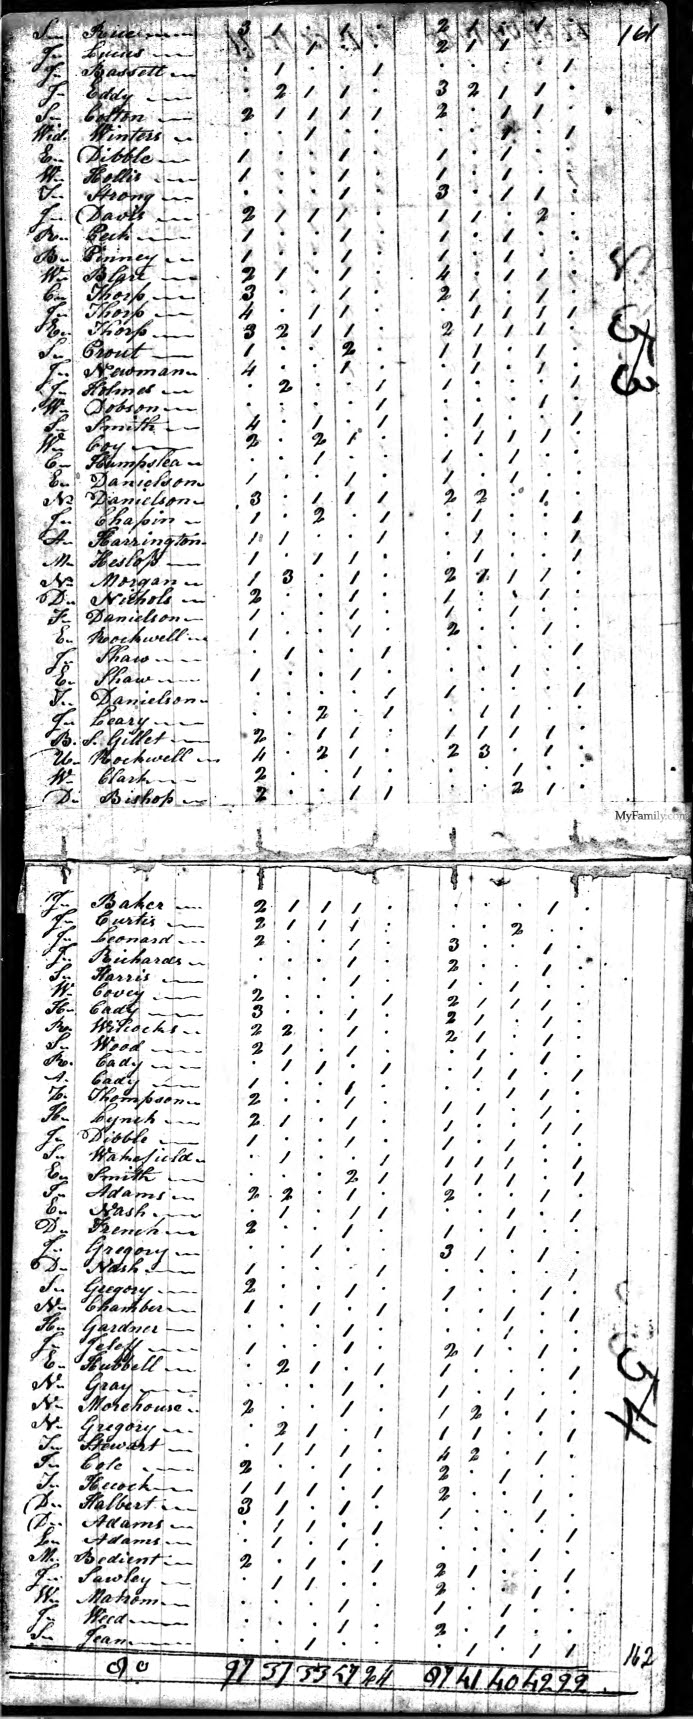 161
S. Rice 3 1 . 1 . 2 1 . 1 .
J. Lucus . . 1 . . 2 1 1 . .
J. Bassett . 1 . . 1 . . . . 1
J. Eddy . 2 1 1 . 3 2 1 1 .
S. Colton 2 1 1 1 1 2 . 1 1 .
Wid. Winters . . 1 . . . . 1 . 1
E. Dibble 1 . . 1 . 1 . 1 . .
W. Hollis 1 . . 1 . 1 . . 1 .
J. Strong . . . 1 . 3 . 1 1 .
J. Davis 2 1 1 1 . 1 1 . 2 .
R. Peck 1 . . 1 . 1 . . 1 .
B. Pinney 1 . . 1 . 1 . 1 . .
W. Blare 2 1 . 1 . 4 . 1 1 .
C. Thorp 3 . . 1 . 2 1 . 1 .
J. Thorp 4 . 1 1 . . 1 1 1 1
E. Thorp 3 2 1 1 . 2 1 1 1 .
S. Crout 1 . . 2 . 1 1 . 1 .
J. Newman 4 . . 1 . . 1 . 1 .
J. Holmes . 2 . . 1 1 . . . 1
W. Dobson . . . . 1 . . . 1 .
S. Smith 4 . 1 . 1 . 1 . . 1
W. Coy 2 . 2 1 . . 1 1 1 .
C. Humpstea . . 1 . . 1 . 1 . .
E. Danielson 1 . . 1 . 1 . 1 . .
N. Danielson 3 . 1 1 1 2 2 . 1 .
J. Chapin 1 . 2 . 1 . 1 . . 1
A. Harrington 1 1 . . 1 . 1 . . 1
M. Heslop 1 . 1 1 . . 1 . . 1
N. Morgan 1 3 . 1 . 2 1 1 1 .
D. Nichols 2 . . 1 . 1 . . 1 .
F. Danielson 1 . . 1 . 1 . 1 . .
E. Rockwell 1 . . 1 . 2 . . 1 .
J. Shaw . 1 . . 1 . . . . 1
E. Shaw 1 . . 1 . . . 1 . .
J. Danielson . . . . 1 1 . . . 1
J. Leary . . 2 . 1 . 1 1 . .
B. S. Gillet 2 . 1 1 . 1 1 1 1 .
U. Rockwell 4 . 2 1 . 2 3 . 1 .
W. Clark 2 . . 1 . . . 1 . .
D. Bishop 2 . . 1 1 . . 2 1 .
53
MyFamily.com
J. Baker 2 1 1 1 . . . . 1 .
J. Curtis 2 1 1 1 . . . 2 . .
J. Leonard 2 . . 1 . 3 . . 1 .
J. Richards . . . 1 . 2 . . 1 .
S. Harris . . . 1 . 1 . 1 . .
W. Covey 2 . . . 1 2 1 1 1 .
H. Cady 3 . . 1 . 2 1 . 1 .
R. Wilcocks 2 2 . 1 . 2 1 . 1 .
S. Wood 2 1 . 1 . . 1 . 1 .
R. Cady . 1 1 . 1 . 1 1 . 1
A. Cady 1 . . 1 . . . . 1 .
Z. Thompson 2 . . 1 . 1 1 . 1 .
H. Lynch 2 1 . 1 . 1 . . 1 .
J. Dibble 1 . . 1 . 1 . 1 . .
S. Wakefield . 1 . . 1 1 1 1 . 1
E. Smith . . . 2 1 1 1 1 . 1
J. Adams 2 2 . 1 . 2 . . 1 .
E. Nash . 1 . 1 1 . . 1 . 1
D. French 2 . . 1 . 1 . 1 . .
J. Gregory . . 1 . . 3 1 . 1 .
D. Nash 1 . . . 1 . . . . 1
S. Gregory 2 . . . . 1 . . 1 .
N. Chamber 1 . 1 . 1 . . 1 . 1
H. Gardner . . . 1 . . . 1 . .
J. Jeleff 1 . . 1 . 2 1 . 1 .
E. Hubbell . 2 1 . 1 1 . . . 1
N. Gray . . . 1 . 1 . 1 . .
N. Morehouse 2 . . 1 . 1 2 . 1 .
N. Gregory . 2 1 . 1 1 1 . . 1
J. Stewart . 1 1 1 . 4 2 . 1 .
J. Cole 2 . . 1 . 2 . 1 . .
J. Hecock 1 1 1 . 1 2 . . 1 .
D. Halbert 3 1 . 1 . 1 . . 1 .
D. Adams . 1 1 . 1 . . . . 1
L. Adams . 1 . 1 . . . . 1 .
M. Bedient 2 . 1 . 1 2 1 . . 1
J. Sawley . 1 1 . . 2 . . 1 .
W. Mahom . . . 1 . 1 . 1 . .
J. Weed . . . 1 . 2 . . 1 .
S. Jean . . 1 . . . 1 . 1 1
54
162
97 37 33 57 24 87 41 40 42 22